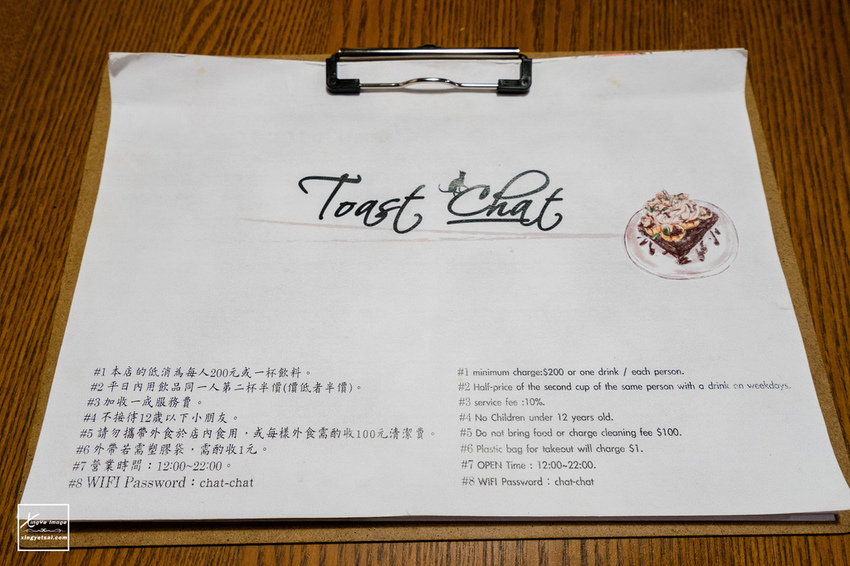 Toast Chat
#1 本店的低消為每人200元或一杯飲料。
#2 平日內用飲品同一人第二杯半價(價低者半價)。
#3 加收一成服務費。
#4 不接待12歲以下小朋友。
#5 請勿攜帶外食於店內食用，或每樣外食需酌收100元清潔費。
#6 外帶若需塑膠袋，需酌收1元。
#7 營業時間：12:00~22:00。
#8 WIFI Password：chat-chat
#1 minimum charge:$200 or one drink / each person.
#2 Half-price of the second cup of the same person with a drink on weekdays.
#3 service fee :10%.
#4 No Children under 12 years old.
#5 Do not bring food or charge cleaning fee $100.
#6 Plastic bag for takeout will charge $1.
#7 OPEN Time : 12:00~22:00.
#8 WIFI Password : chat-chat
XingYe image
xingyetsai.com